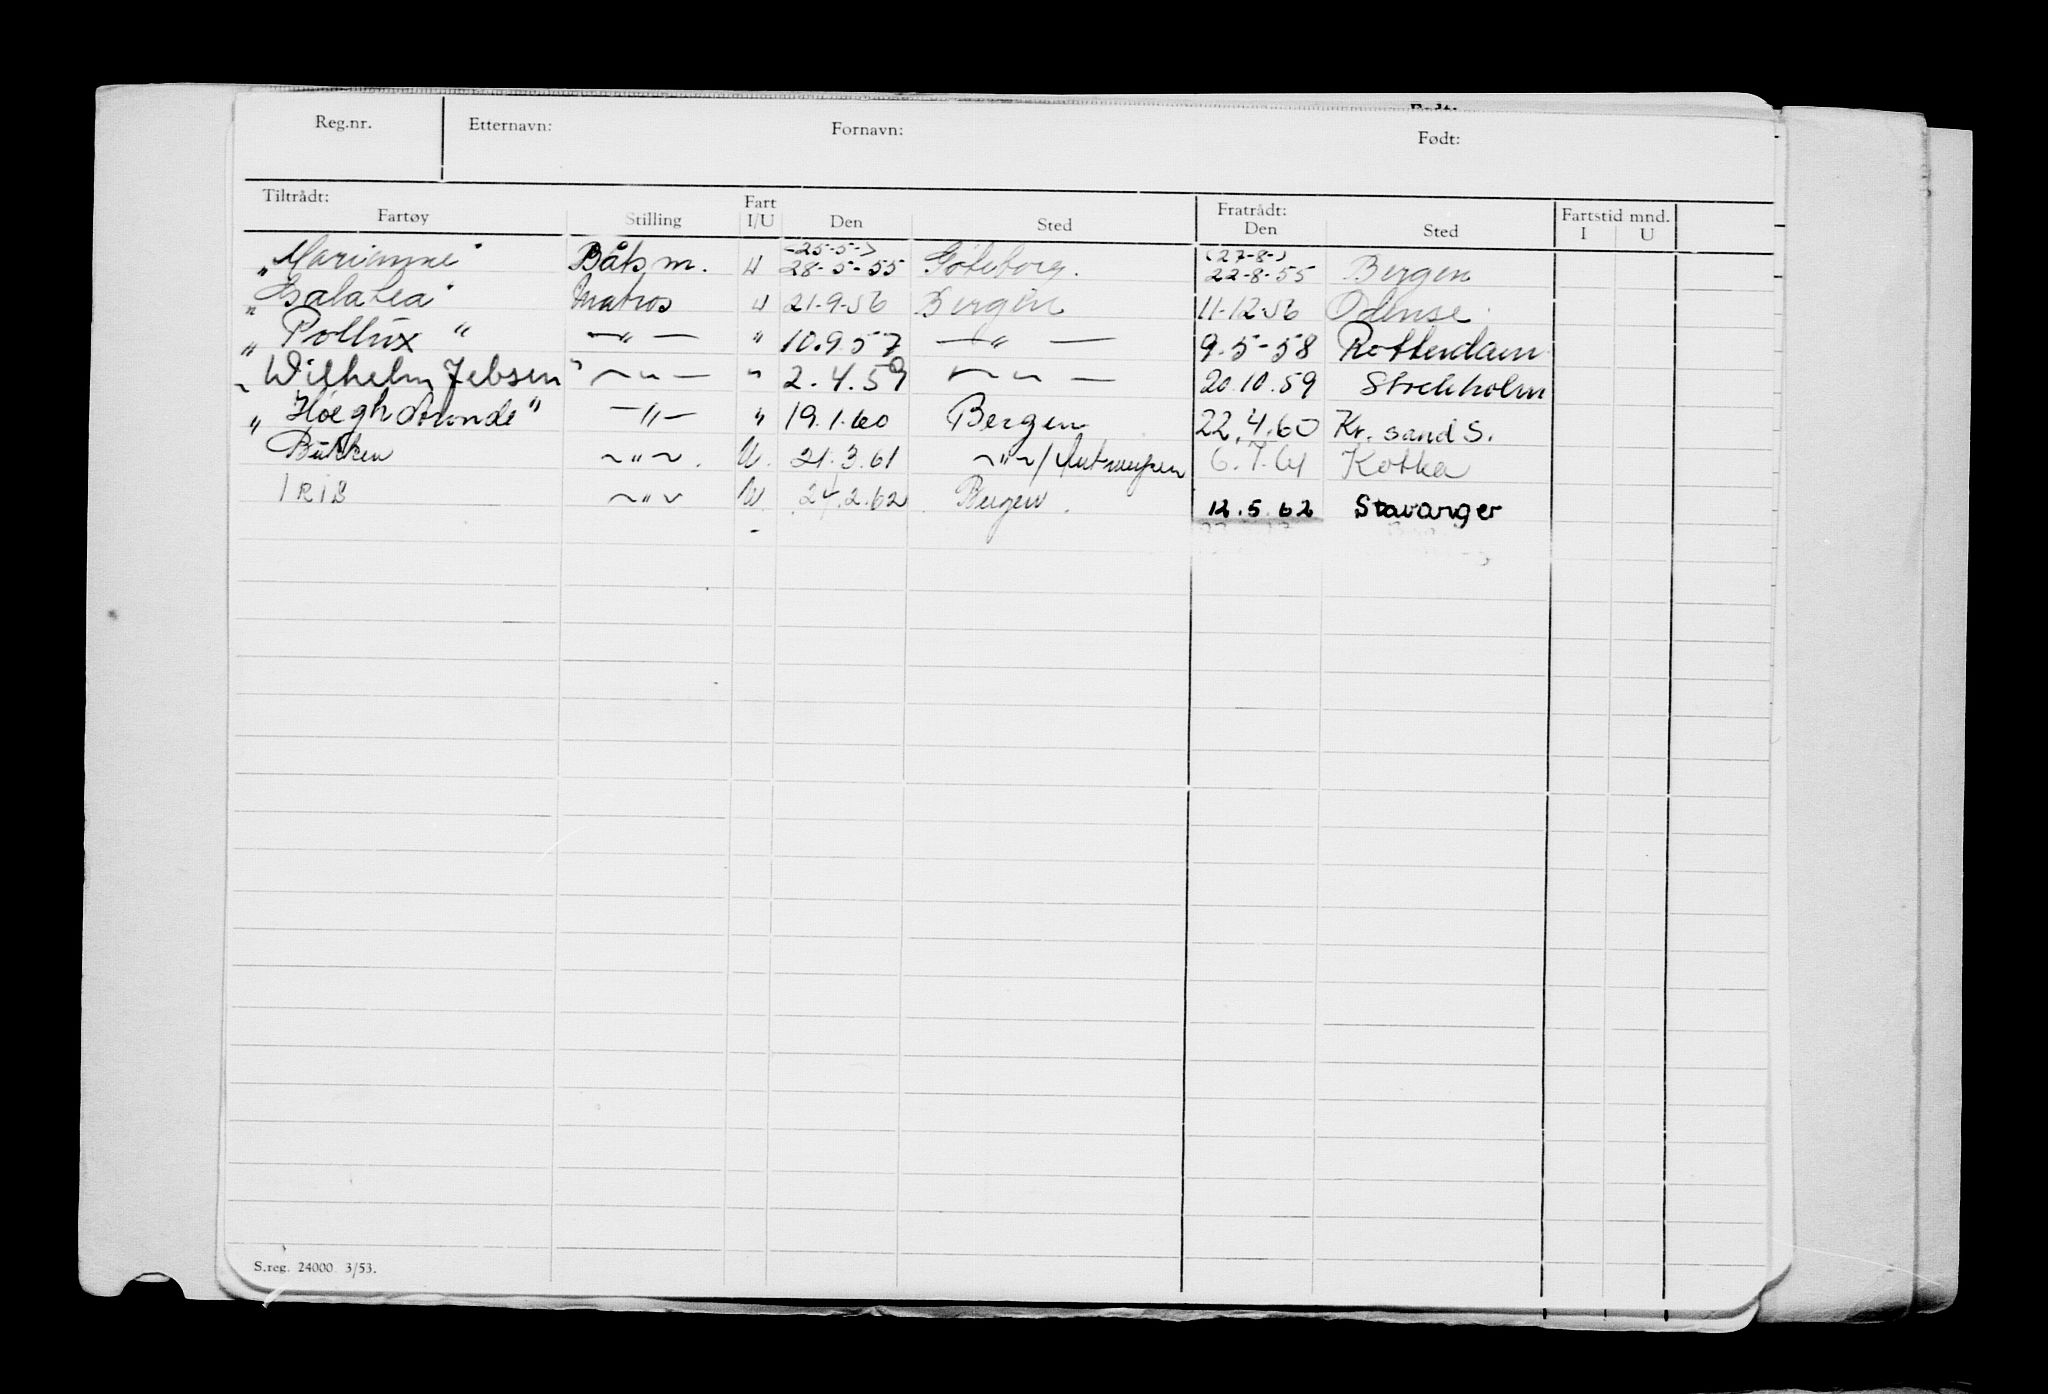 Reg.nr. Etternavn: Fornavn: Født:
Tiltrådt: Fartøy Stilling Fart I/U Den Sted Fratrådt: Den Sted Fartstid mnd. I U
(25-5-) (27-8-)
„Marianne" Båtsm. U 28-5-55 Göteborg. 22-8-55 Bergen
„Galatea" Matros U 21.9.56 Bergen 11-12-56 Odense.
„Pollux" —„— " 10.9.57 —„— 9.5-58 Rotterdam
„Wilhelm Jebsen" —„— " 2.4.59 —„— 20.10.59 Stockholm
„Høegh Aronde" —"— " 19.1.60 Bergen 22.4.60 Kr.sand S.
Bukken —"—. U. 21.3.61 —"—/Antwerpen 6.7.61 Kotka
IRIS —"— U. 24.2.62 Bergen. 12.5.62 Stavanger
S.reg. 24000 3/53.